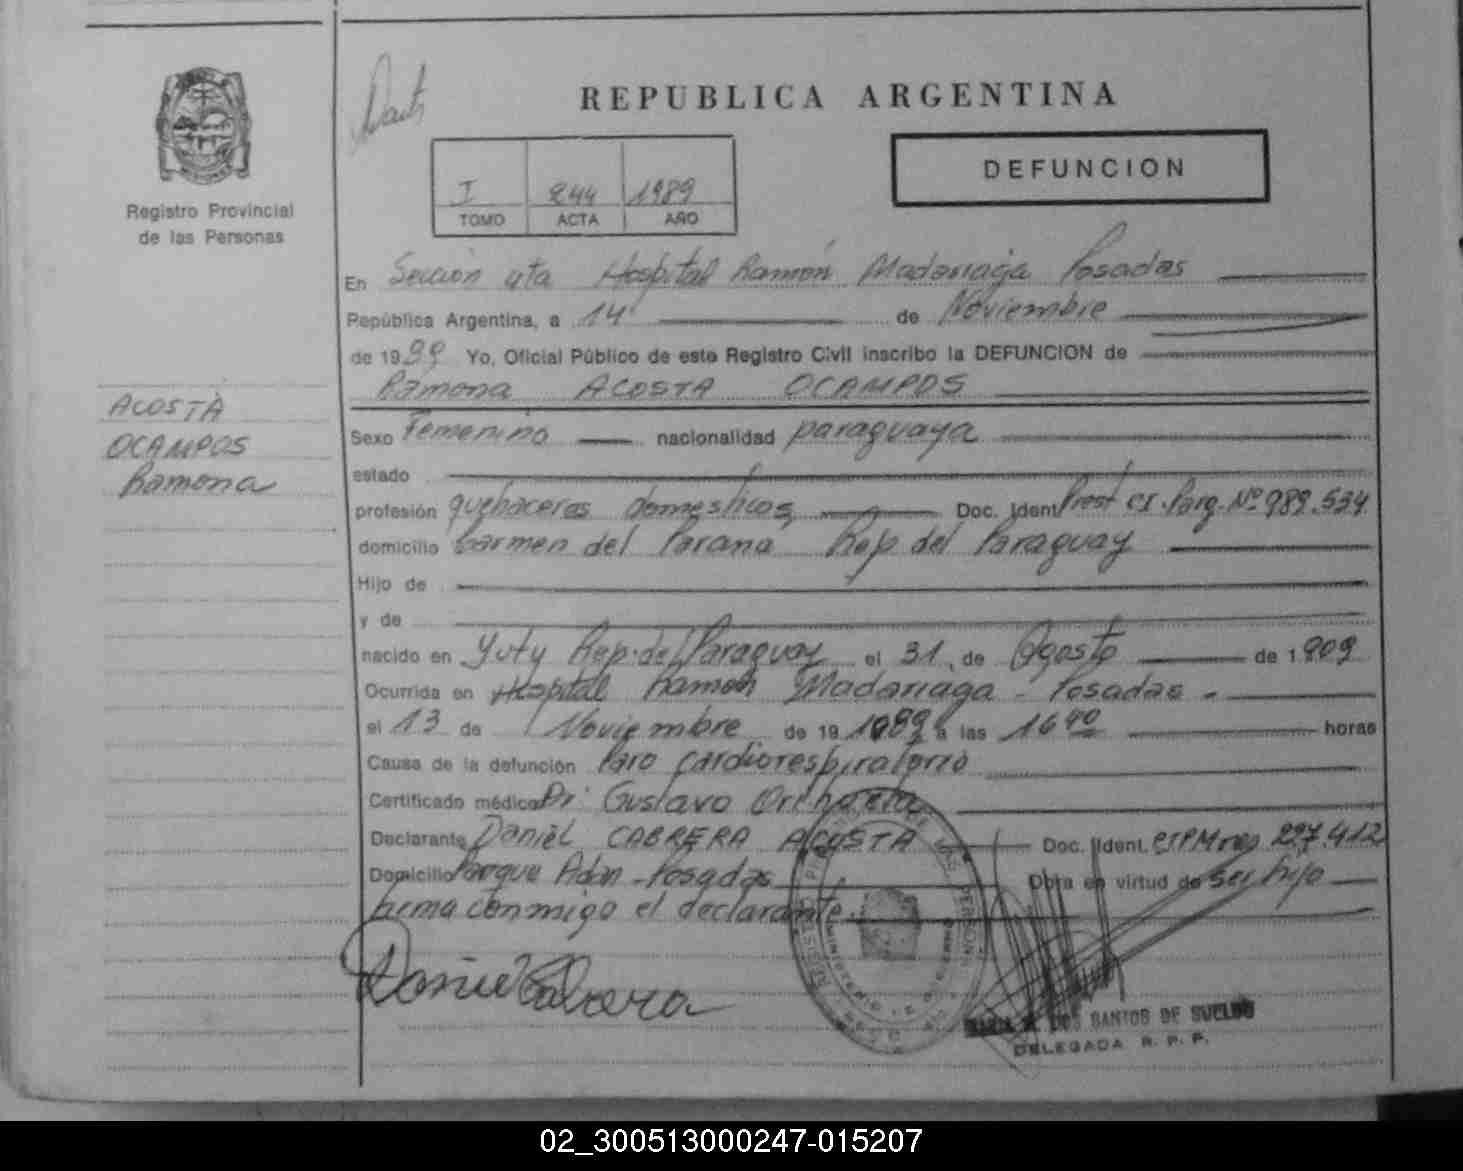 REPUBLICA ARGENTINA
DEFUNCION
I 244 1989
TOMO ACTA AÑO
Registro Provincial
de las Personas
En Sección 4ta Hospital Ramón Madariaga Posadas
República Argentina, a 14 de Noviembre
de 1989 Yo, Oficial Público de este Registro Civil inscribo la DEFUNCION de
Ramona ACOSTA OCAMPOS
ACOSTA
OCAMPOS
Ramona
Sexo Femenino nacionalidad paraguaya
estado
profesión quehaceres domesticos, Doc. Ident. Prest CI. Parg. Nº 989.534
domicilio Carmen del Parana Rep del Paraguay
Hijo de
y de
nacido en Yuty Rep. del Paraguay el 31 de Agosto de 1.909
Ocurrida en Hospital Ramón Madariaga - Posadas -
el 13 de Noviembre de 19 1989 a las 16 40 horas
Causa de la defunción Paro cardiorespiratorio
Certificado médico Dr. Gustavo
Declarante Daniel CABRERA ACOSTA Doc. Ident. CIPMnes 297.412
Domicilio Parque Adan - Posadas Obra en virtud de ser hijo
firma conmigo el declarante.
Daniel Cabrera
DOS SANTOS DE SUELDO
DELEGADA R. P. P.
02_300513000247-015207